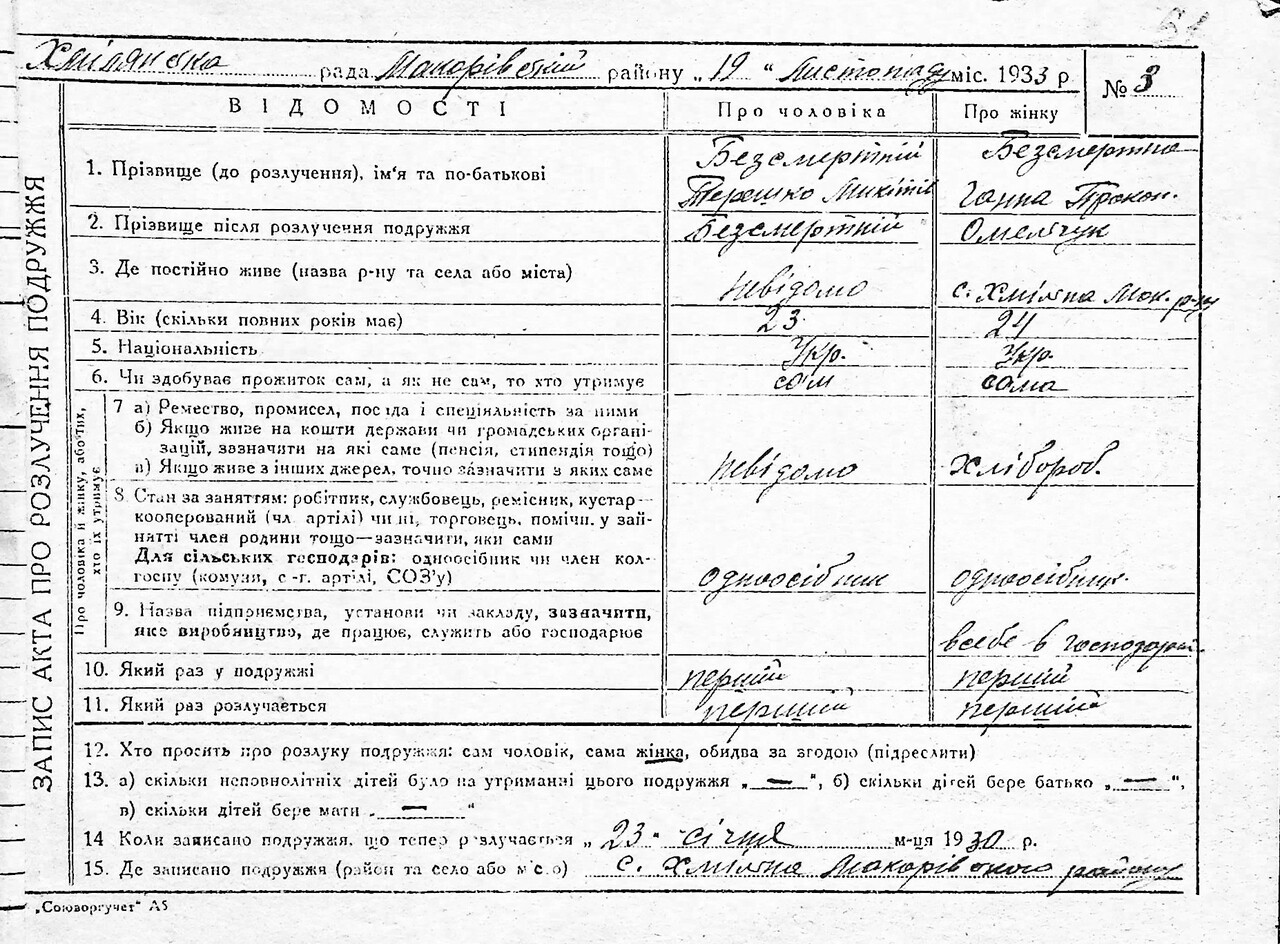 Хмілянська рада Макарівський району „ 19 “ Листопада міс. 1933 р
№ 3
ВІДОМОСТІ
Про чоловіка
Про жінку
ЗАПИС АКТА ПРО РОЗЛУЧЕННЯ ПОДРУЖЖЯ
1. Прізвище (до розлучення), ім'я та по-батькові
Безсмертній
Терешко Микітів
Безсмертна
Ганна Прокоп.
2. Прізвище після розлучення подружжя
Безсмертній
Омельчук
3. Де постійно живе (назва р-ну та села або міста)
невідомо
с. Хмільна Мак. р-ну
4. Вік (скільки повних років має)
23
24
5. Національність
Укр.
Укр.
6. Чи здобуває прожиток сам, а як не сам, то хто утримує
сам
сама
Про чоловіка й жінку, або тих,
хто їх утримує
7 а) Ремество, промисел, посада і спеціяльність за ними
б) Якщо живе на кошти держави чи громадських органі-
зацій, зазначити на які саме (пенсія, стипендія тощо)
в) Якщо живе з інших джерел, точно зазначити з яких саме
невідомо
хлібороб.
8. Стан за заняттям: робітник, службовець, ремісник, кустар—
кооперований (чл. артілі) чи ні, торговець, помічн. у зай-
нятті член родини тощо—зазначити, яки сами
Для сільських господарів: одноосібник чи член кол-
госпу (комуня, с-г. артілі, СОЗ'у)
одноосібник
одноосібниц.
9. Назва підприємства, установи чи закладу, зазначити,
яке виробництво, де працює, служить або господарює
всебе в господарс.
10. Який раз у подружжі
перший
перший
11. Який раз розлучається
перший
перший
12. Хто просить про розлуку подружжя: сам чоловік, сама жінка, обидва за згодою (підреслити)
13. а) скільки неповнолітніх дітей було на утриманні цього подружжя „ — “, б) скільки дітей бере батько „ — “,
в) скільки дітей бере мати „ — “
14 Коли записано подружжя, що тепер розлучається „ 23 “ січня м-ця 1930 р.
15. Де записано подружжя (район та село або місто) с. Хмільна Макарівского району
„Союзоргучет“ А5